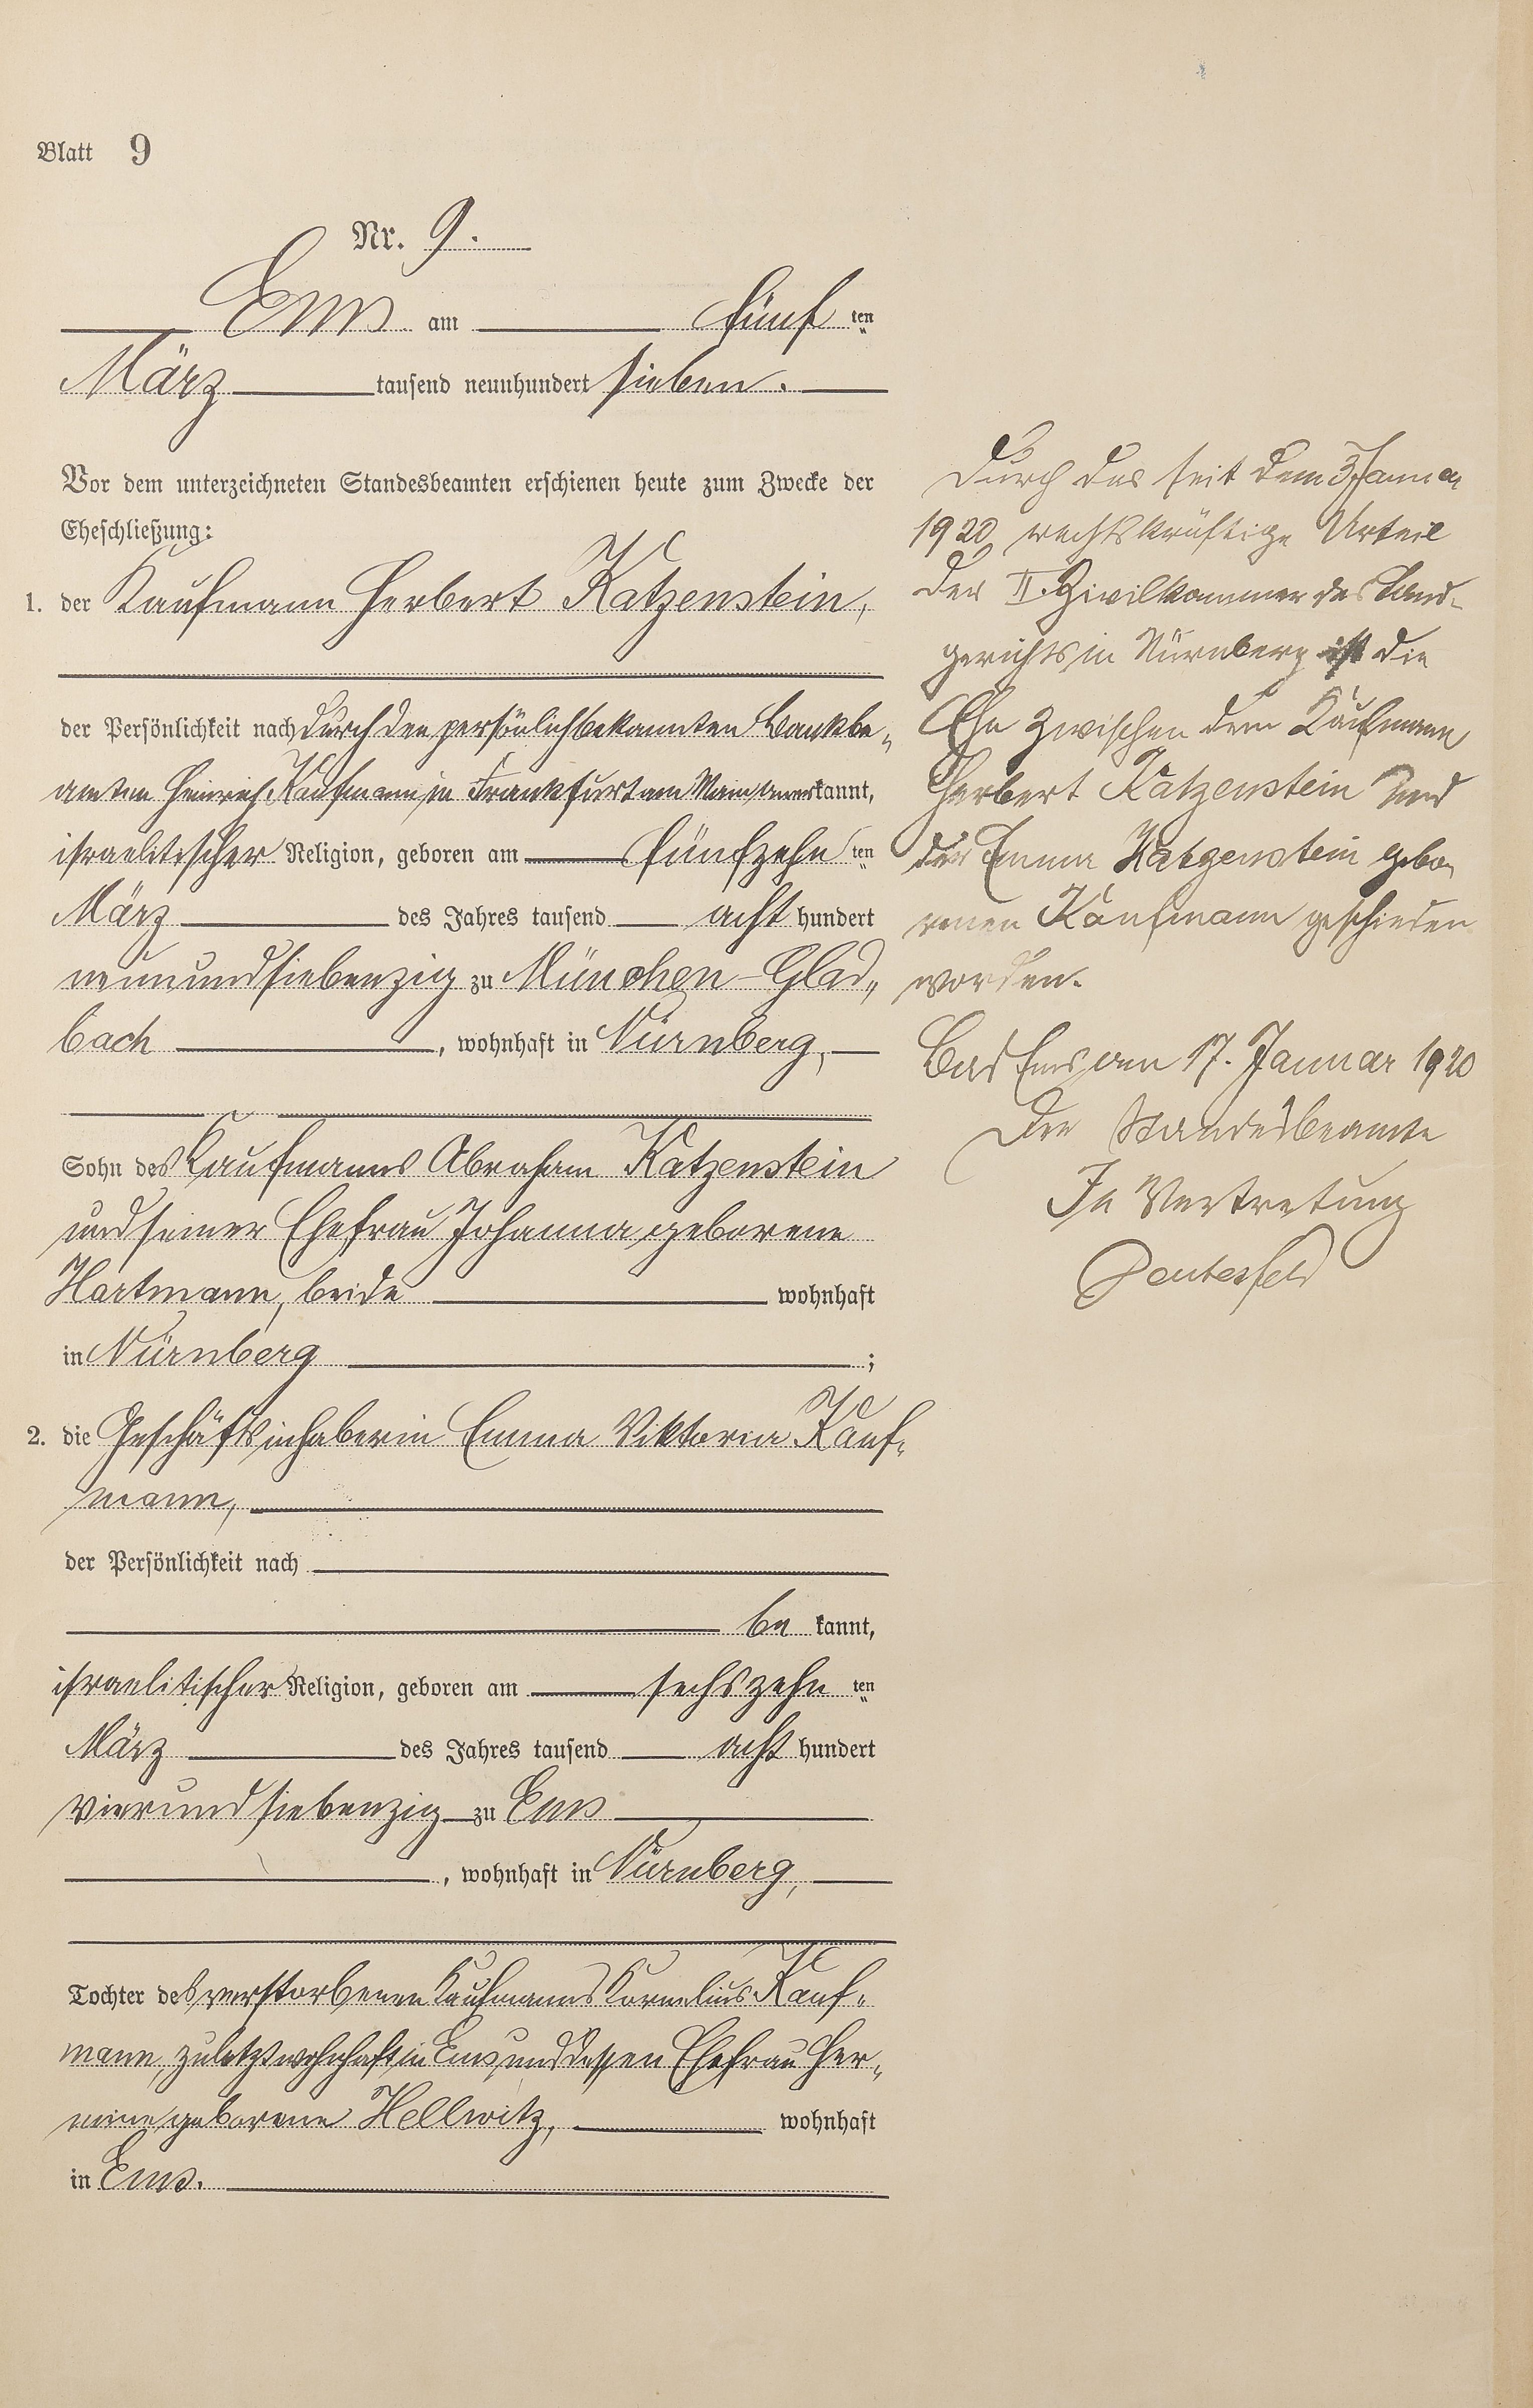 Blatt 9
Nr. 9.
Ems am fünf ten
März tausend neunhundert sieben.
Vor dem unterzeichneten Standesbeamten erschienen heute zum Zwecke der
Eheschließung:
1. der Kaufmann Herbert Katzenstein,
der Persönlichkeit nach durch den persönlich bekannten Bankbe-
amten Heinrich Kaufmann in Frankfurt am Main anerkannt,
israelitischer Religion, geboren am fünfzehn ten
März des Jahres tausend acht hundert
neunundsiebenzig zu München-Glad-
bach, wohnhaft in Nürnberg,
Sohn des Kaufmanns Abraham Katzenstein
und seiner Ehefrau Johanna geborene
Hartmann, beide wohnhaft
in Nürnberg;
2. die Geschäftsinhaberin Emma Viktoria Kauf-
mann,
der Persönlichkeit nach
be kannt,
israelitischer Religion, geboren am sechszehn ten
März des Jahres tausend acht hundert
vierundsiebenzig zu Ems
, wohnhaft in Nürnberg,
Tochter des verstorbenen Kaufmanns Kornelius Kauf-
mann, zuletzt wohnhaft in Ems, und dessen Ehefrau Her-
mine geborene Hellwitz, wohnhaft
in Ems.
Durch das seit dem 3. Januar
1920 rechtskräftige Urteil
der II. Zivilkammer des Land-
gerichts in Nürnberg ist die
Ehe zwischen dem Kaufmann
Herbert Katzenstein und
der Emma Katzenstein gebo-
renen Kaufmann geschieden
worden.
Bad Ems, am 17. Januar 1920
Der Standesbeamte
In Vertretung